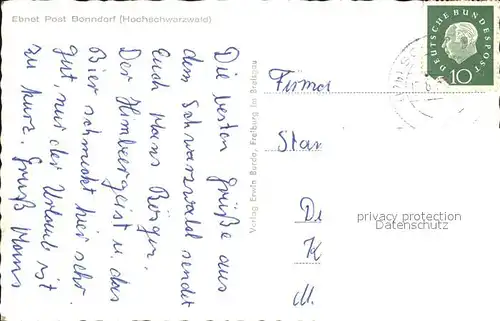 Ebnet Post Bonndorf (Hochschwarzwald)
Die besten Grüße aus
dem Schwarzwald sendet
Euch Hans Börger.
Der Himbeergeist u. das
Bier schmeckt hier sehr
gut, nur der Urlaub ist
zu kurz. Gruß Hans
Verlag Erwin Burda, Freiburg im Breisgau
DEUTSCHE BUNDESPOST
10
Firma
Star
Di
K
M.
privacy protection
Datenschutz